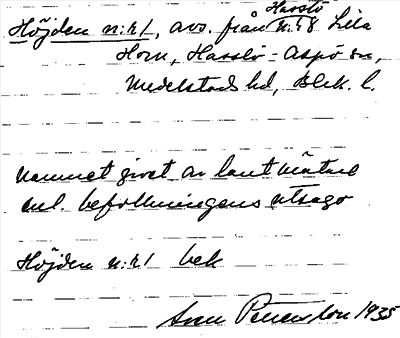 Hasslö
Höjden n:r 1, avs. från n:r 8 Lilla
Horn, Hasslö-Aspö sn,
Medelstads hd, Blek. l.
namnet givet av lantmätare
enl. befolkningens utsago
Höjden n:r 1 bek
Sven Petersson 1935